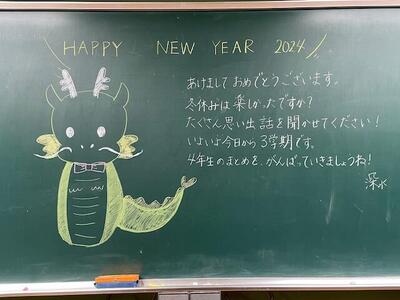 HAPPY NEW YEAR 2024
あけましておめでとうございます。
冬休みは楽しかったですか?
たくさん思い出話を聞かせてください!
いよいよ今日から3学期です。
4年生のまとめを、がんばっていきましょうね!
深水